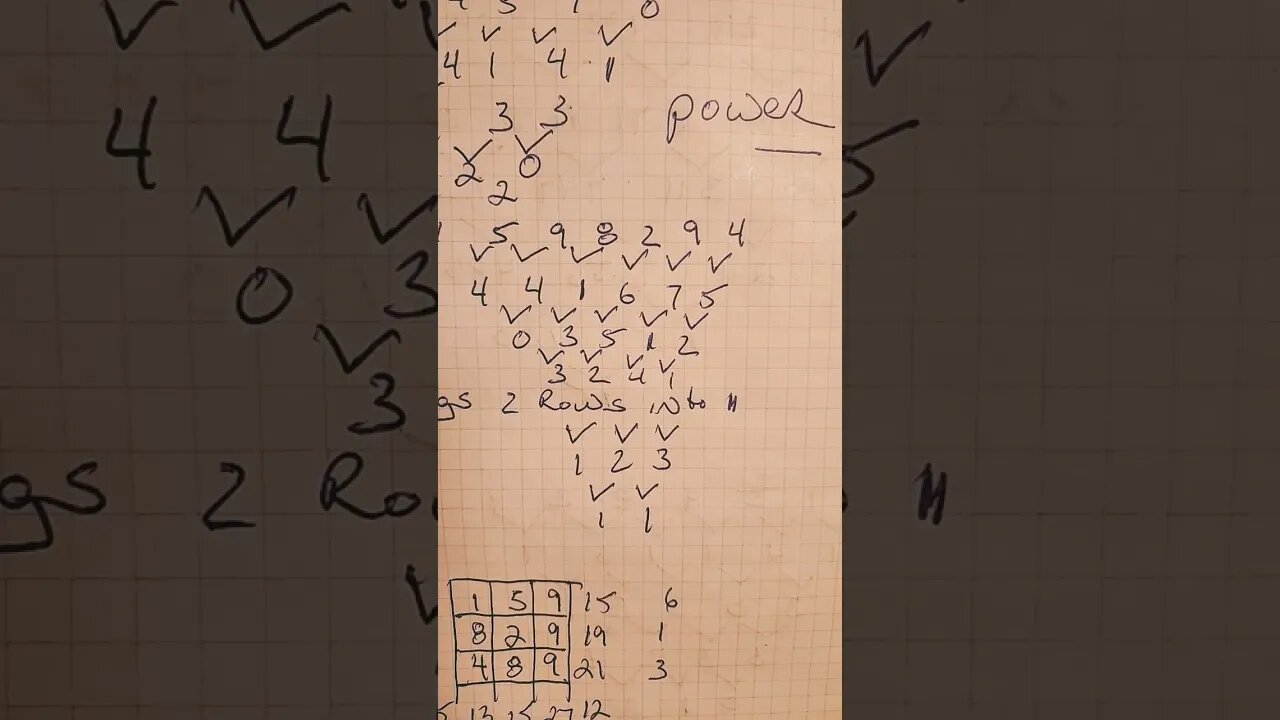 4 1 4 1
3 3
power
2 0
2
5 9 8 2 9 4
4 4 1 6 7 5
0 3 5 1 2
3 2 4 1
gs 2 Rows into 11
1 2 3
1 1
1 5 9 15 6
8 2 9 19 1
4 8 9 21 3
13 15 27 12